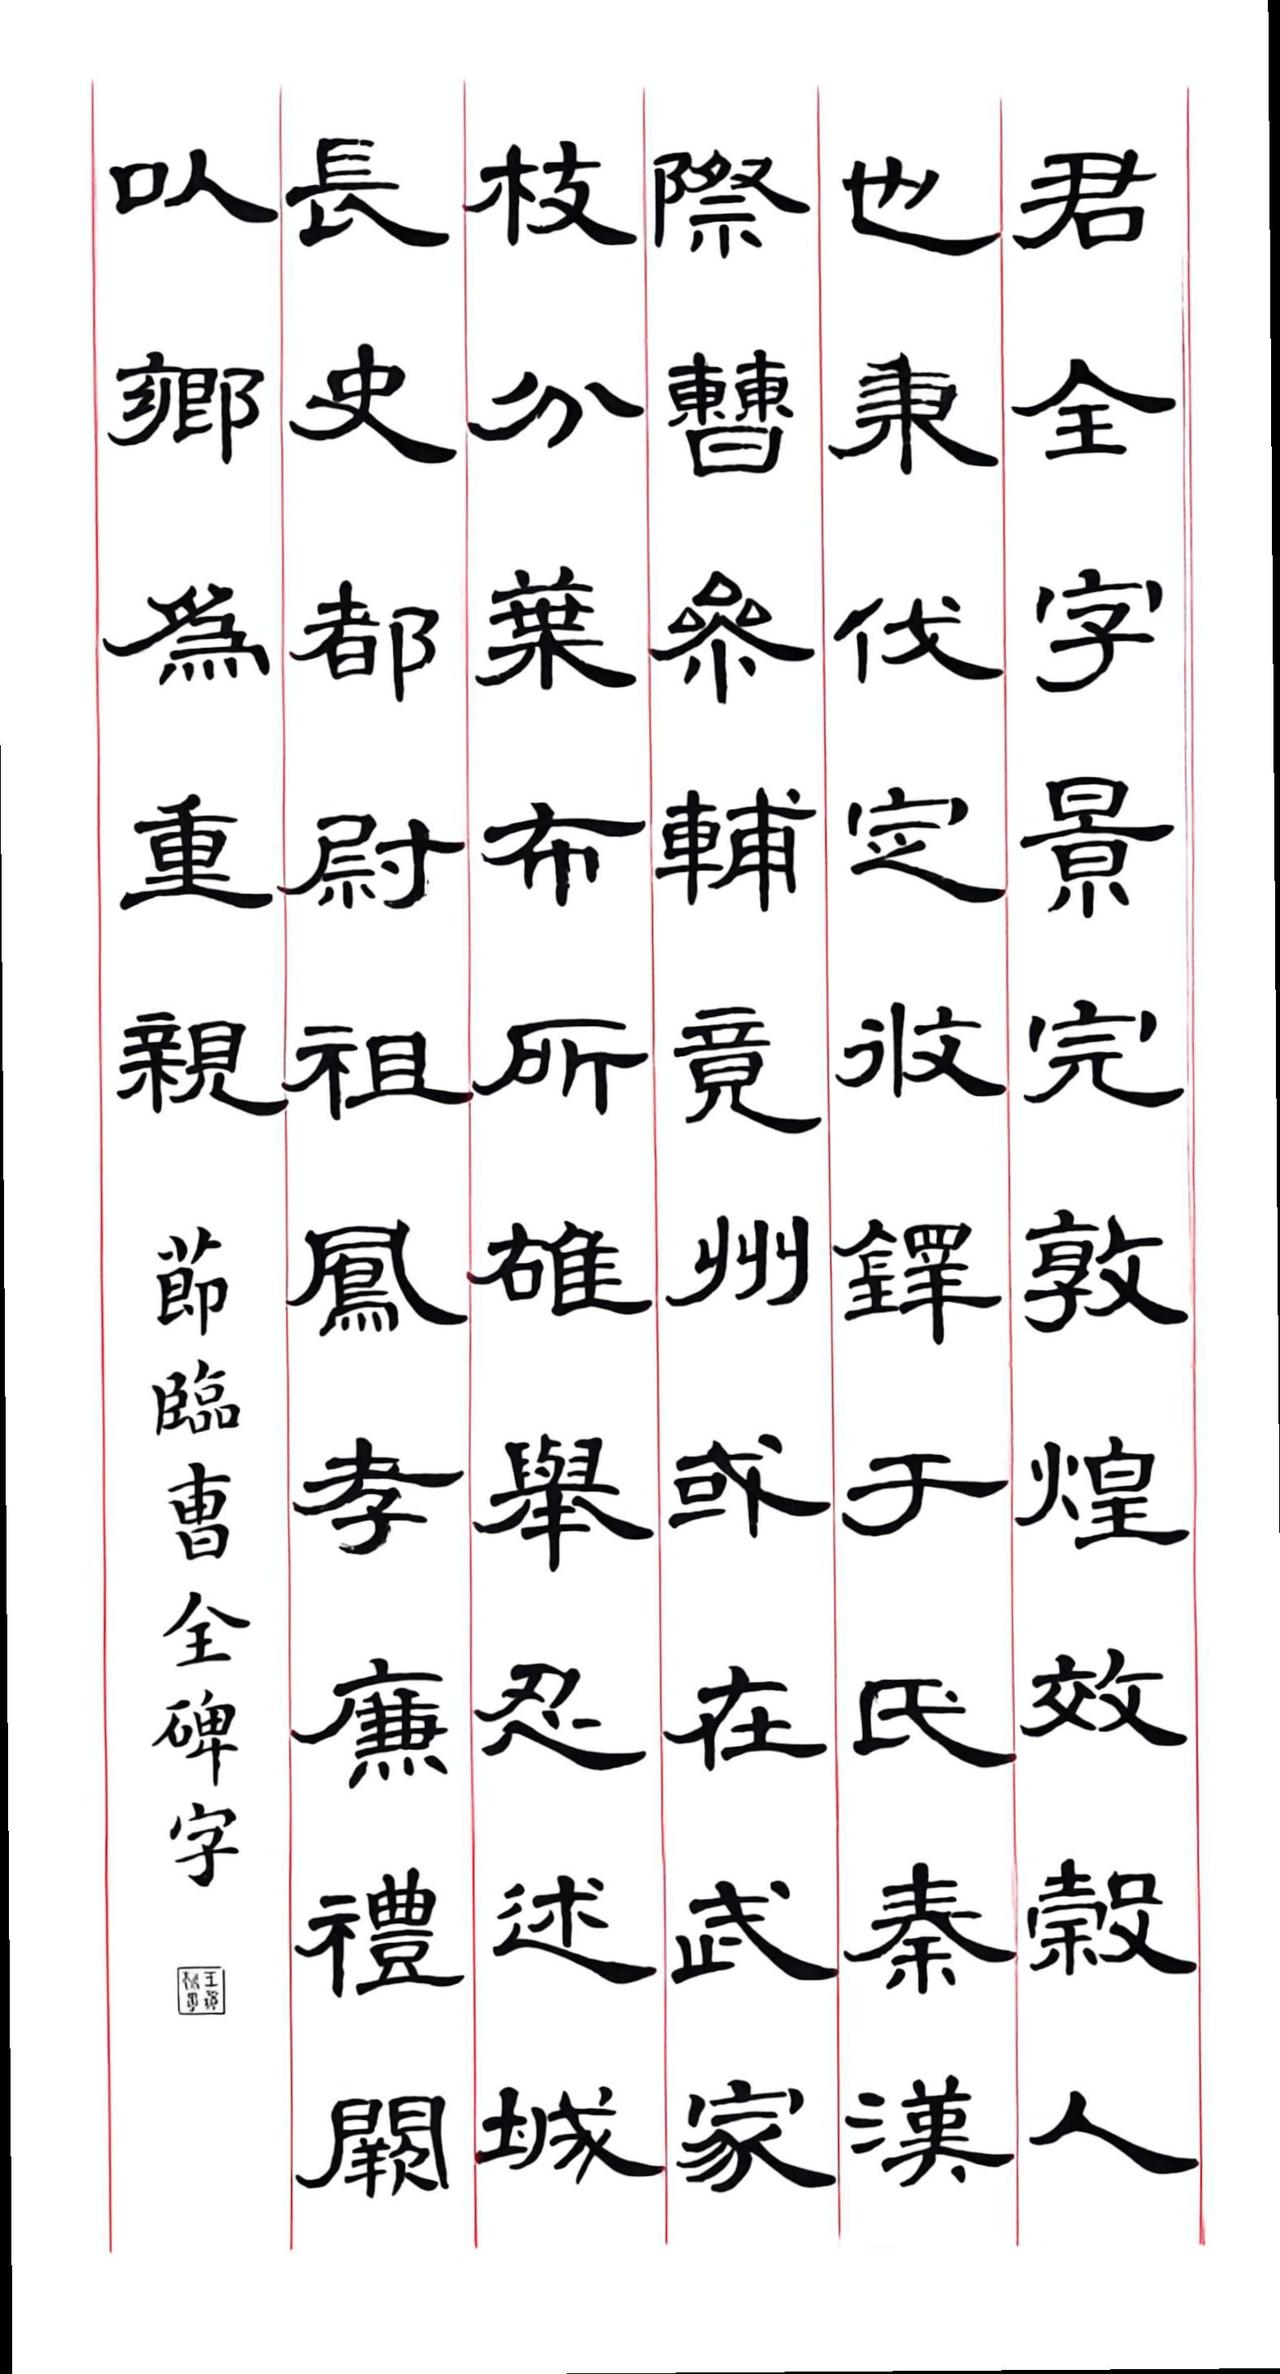 君全字景完敦煌效穀人
也秉伐定收鐸于氏秦漢
際曹參輔竟州或在武家
枝分葉布所雄舉忍述城
長史都尉祖鳳孝廉禮闕
以鄉為重親
節臨曹全碑字